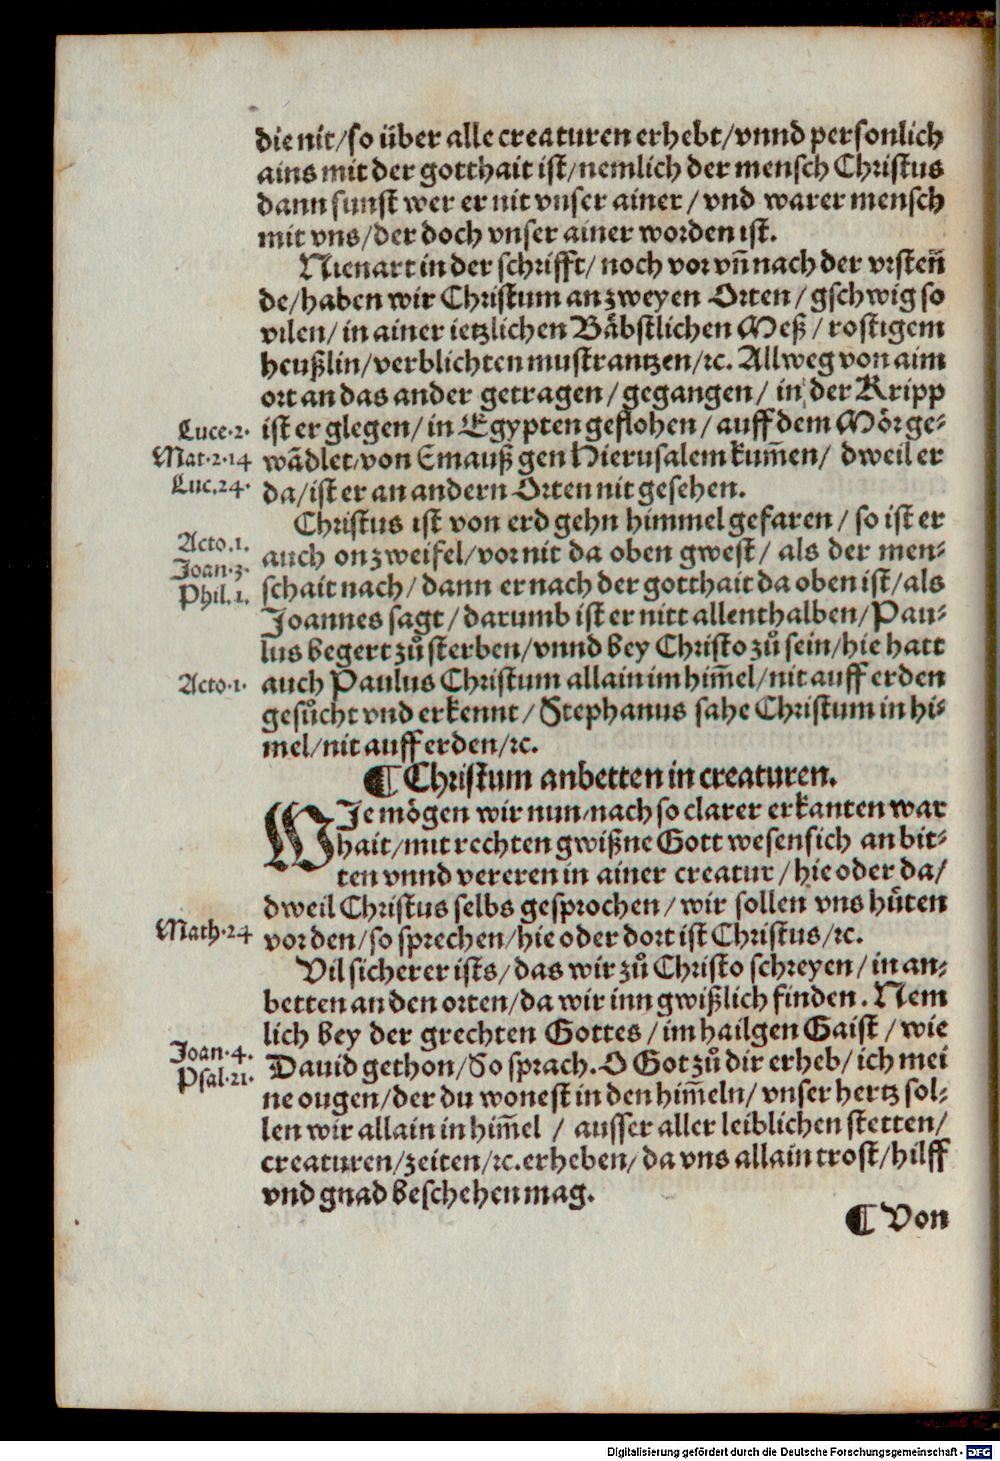 die nit/so über alle creaturen erhebt/vnnd personlich
ains mit der gotthait ist/nemlich der mensch Christus
dann sunst wer er nit vnser ainer/vnd warer mensch
mit vns/der doch vnser ainer worden ist.
Nienart in der schrifft/noch vor vñ nach der vrsteñ
de/haben wir Christum an zweyen Orten/gschwig so
vilen/in ainer ietzlichen Bäbstlichen Meß/rostigem
heußlin/verblichten mustrantzen/ꝛc. Allweg von aim
ort an das ander getragen/gegangen/in der Kripp
Luce.2. ist er glegen/in Egypten geflohen/auff dem Mör ge-
Mat.2.14 wādlet/von Emauß gen Hierusalem kum̄en/dweil er
Luc.24. da/ist er an andern Orten nit gesehen.
Christus ist von erd gehn himmel gefaren/so ist er
Acto.1. auch on zweifel/vor nit da oben gwest/als der men-
Joan.3. schait nach/dann er nach der gotthait da oben ist/als
Phil.1. Joannes sagt/darumb ist er nitt allenthalben/Pau-
lus begert zů sterben/vnnd bey Christo zů sein/hie hatt
Acto.1. auch Paulus Christum allain im him̄el/nit auff erden
gesůcht vnd erkennt/Stephanus sahe Christum in hi-
mel/nit auff erden/ꝛc.
¶ Christum anbetten in creaturen.
WJe mögen wir nun/nach so clarer erkanten war
hait/mit rechten gwißne Gott wesenlich anbit-
ten vnnd vereren in ainer creatur/hie oder da/
dweil Christus selbs gesprochen/wir sollen vns hůten
Math.24 vor den/so sprechen/hie oder dort ist Christus/ꝛc.
Vil sicherer ists/das wir zů Christo schreyen/in an-
betten an den orten/da wir inn gwißlich finden. Nem
lich bey der grechten Gottes/im hailgen Gaist/wie
Joan.4. Dauid gethon/So sprach. O Got zů dir erheb/ich mei
Psal.21. ne ougen/der du wonest in den him̄eln/vnser hertz sol-
len wir allain in him̄el / ausser aller leiblichen stetten/
creaturen/zeiten/ꝛc. erheben/da vns allain trost/hilff
vnd gnad beschehen mag.
¶ Von
Digitalisierung gefördert durch die Deutsche Forschungsgemeinschaft - DFG